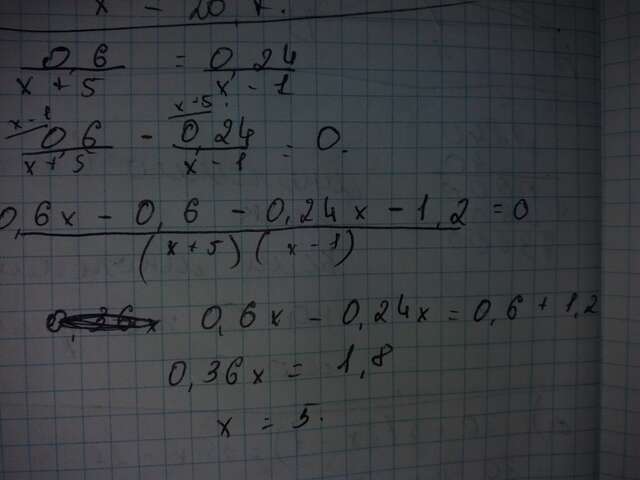 x - 20
0,6 / x + 5 = 0,24 / x - 1
x - 1 / 0,6 / x + 5 - x - 5 / 0,24 / x - 1 = 0.
0,6x - 0,6 - 0,24x - 1,2 = 0
(x + 5)(x - 1)
0,6x - 0,24x = 0,6 + 1,2
0,36x = 1,8
x = 5.